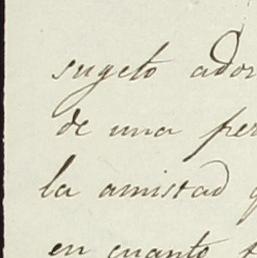 sugeto ador
de una per
la amistad q
en cuanto